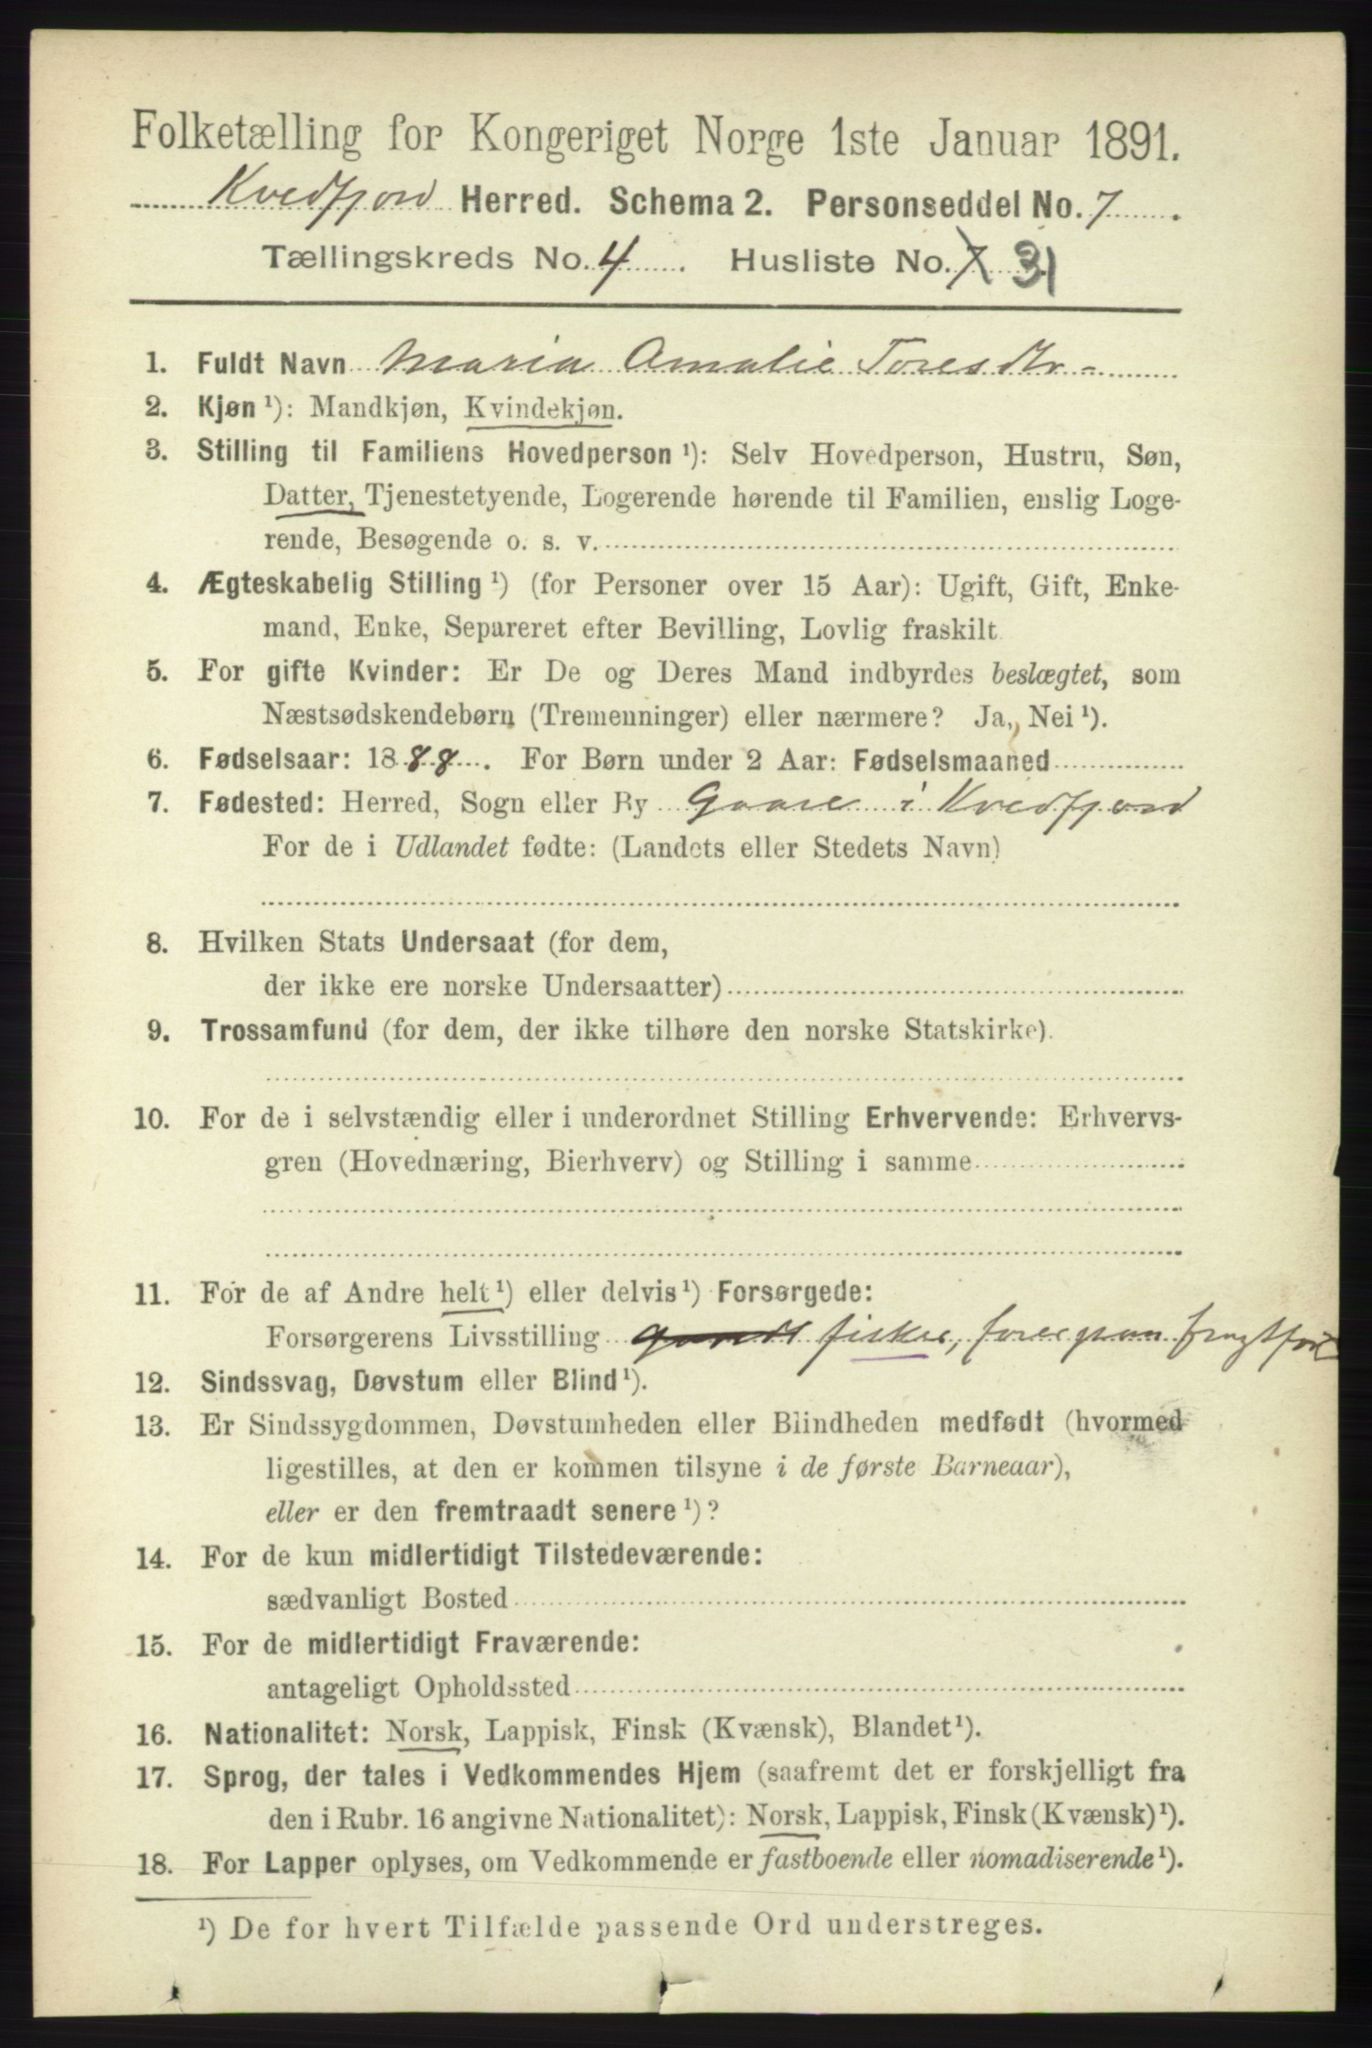 Folketælling for Kongeriget Norge 1ste Januar 1891.
Kvedfjord Herred. Schema 2. Personseddel No. 7.
Tællingskreds No. 4. Husliste No. 7 31
1. Fuldt Navn Maria Amalie Toresdtr.
2. Kjøn ¹): Mandkjøn, Kvindekjøn.
3. Stilling til Familiens Hovedperson ¹): Selv Hovedperson, Hustru, Søn,
Datter, Tjenestetyende, Logerende hørende til Familien, enslig Loge-
rende, Besøgende o. s. v.
4. Ægteskabelig Stilling ¹) (for Personer over 15 Aar): Ugift, Gift, Enke-
mand, Enke, Separeret efter Bevilling, Lovlig fraskilt
5. For gifte Kvinder: Er De og Deres Mand indbyrdes beslægtet, som
Næstsødskendebørn (Tremenninger) eller nærmere? Ja, Nei ¹).
6. Fødselsaar: 1888. For Børn under 2 Aar: Fødselsmaaned
7. Fødested: Herred, Sogn eller By Gaare i Kvedfjord
For de i Udlandet fødte: (Landets eller Stedets Navn)
8. Hvilken Stats Undersaat (for dem,
der ikke ere norske Undersaatter)
9. Trossamfund (for dem, der ikke tilhøre den norske Statskirke).
10. For de i selvstændig eller i underordnet Stilling Erhvervende: Erhvervs-
gren (Hovednæring, Bierhverv) og Stilling i samme
11. For de af Andre helt ¹) eller delvis ¹) Forsørgede:
Forsørgerens Livsstilling fisker,
12. Sindssvag, Døvstum eller Blind ¹).
13. Er Sindssygdommen, Døvstumheden eller Blindheden medfødt (hvormed
ligestilles, at den er kommen tilsyne i de første Barneaar),
eller er den fremtraadt senere ¹)?
14. For de kun midlertidigt Tilstedeværende:
sædvanligt Bosted
15. For de midlertidigt Fraværende:
antageligt Opholdssted
16. Nationalitet: Norsk, Lappisk, Finsk (Kvænsk), Blandet ¹).
17. Sprog, der tales i Vedkommendes Hjem (saafremt det er forskjelligt fra
den i Rubr. 16 angivne Nationalitet): Norsk, Lappisk, Finsk (Kvænsk) ¹).
18. For Lapper oplyses, om Vedkommende er fastboende eller nomadiserende ¹).
¹) De for hvert Tilfælde passende Ord understreges.